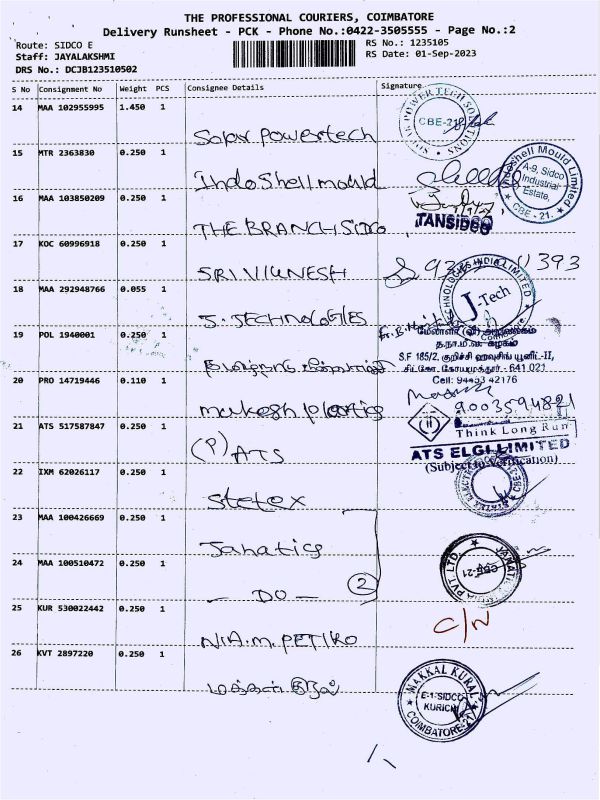 THE PROFESSIONAL COURIERS, COIMBATORE
Delivery Runsheet - PCK - Phone No.:0422-3505555 - Page No.:2
Route: SIDCO E
RS No.: 1235105
Staff: JAYALAKSHMI
RS Date: 01-Sep-2023
DRS No.: DCJB123510502
S No Consignment No Weight PCS Consignee Details Signature
14 MAA 102955995 1.450 1
Solar Powertech
SOLAR POWER TECH SOLUTIONS CBE-21
15 MTR 2363830 0.250 1
Indo Shell mould
Indoshell Mould Limited A-9, Sidco Industrial Estate, CBE - 21.
16 MAA 103850209 0.250 1
THE BRANCH SIDCO
TANSIDCO
17 KOC 60996918 0.250 1
SRI VIGNESH
18 MAA 292948766 0.055 1
J. TECHNOLOGIES
TECHNOLOGIES INDIA LIMITED J-Tech
19 POL 1940001 0.250
த.நா.ம.வ. கழகம்
S.F 185/2, குறிச்சி ஹவுசிங் யூனிட்-II,
சிட்கோ, கோயமுத்தூர் - 641 021.
Cell: 94453 42176
20 PRO 14719446 0.110 1
mukesh plastics
9003594821
21 ATS 517587847 0.250 1
(P) ATS
Think Long Run
ATS ELGI LIMITED
(Subject to Verification)
22 IXM 62026117 0.250 1
Statex
23 MAA 100426669 0.250 1
Janatics
24 MAA 100510472 0.250 1
- DO -
2
CBE-21
25 KUR 530022442 0.250 1
N.I.A.M. PETIKO
C/N
26 KVT 2897220 0.250 1
மக்கள் குரல்
MAKKAL KURAL E-1-SIDCO KURICHI COIMBATORE-21